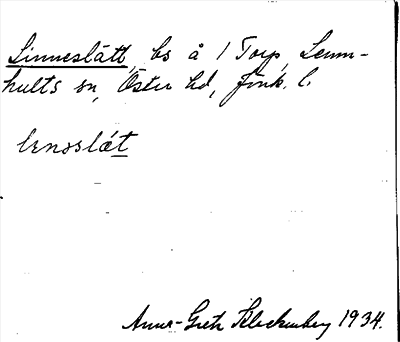 Linneslätt, bs å 1 Torp, Lemn-
hults sn, Öster hd, Jönk. l.
Anna-Greta Kleckenberg 1934.